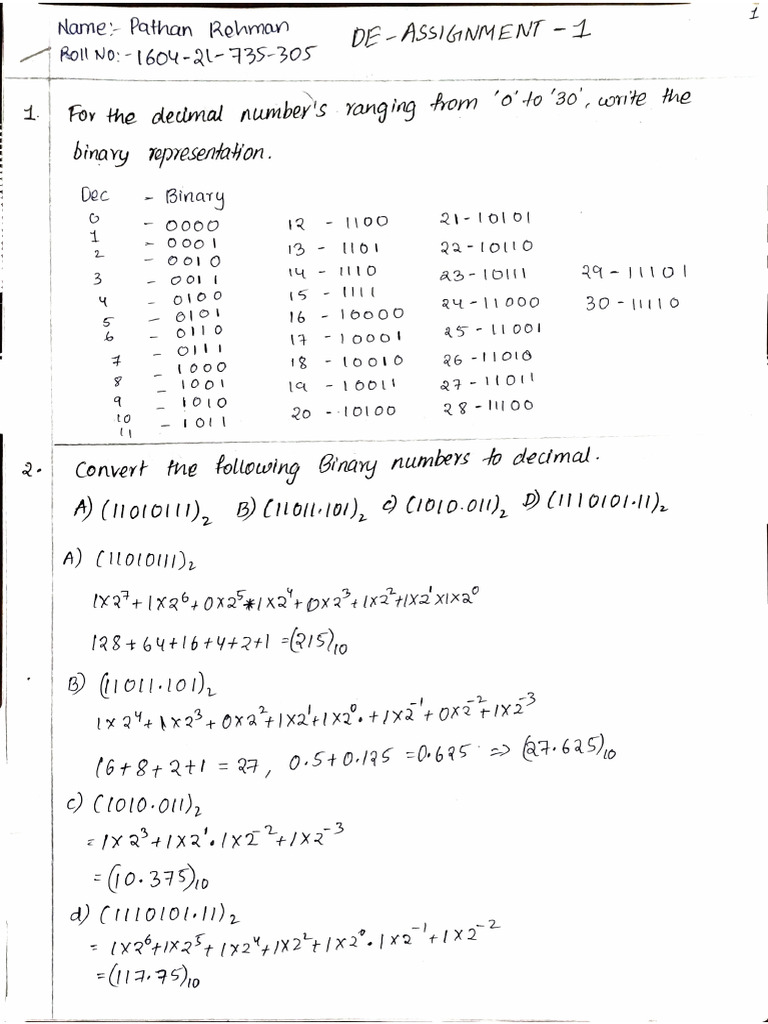 1
Name:- Pathan Rehman
DE-ASSIGNMENT-1
Roll No:-1604-21-735-305
1. For the decimal number's ranging from '0' to '30', write the
binary representation.
Dec - Binary
0 - 0000
1 - 0001
2 - 0010
3 - 0011
4 - 0100
5 - 0101
6 - 0110
7 - 0111
8 - 1000
9 - 1001
10 - 1010
11 - 1011
12 - 1100
13 - 1101
14 - 1110
15 - 1111
16 - 10000
17 - 10001
18 - 10010
19 - 10011
20 - 10100
21-10101
22-10110
23-10111
24-11000
25-11001
26-11010
27-11011
28-11100
29-11101
30-11110
2. Convert the following Binary numbers to decimal.
A) (11010111)₂ B) (11011.101)₂ C) (1010.011)₂ D) (1110101.11)₂
A) (11010111)₂
1x2⁷+1x2⁶+0x2⁵*1x2⁴+0x2³+1x2²+1x2¹x1x2⁰
128+64+16+4+2+1=(215)₁₀
B) (11011.101)₂
1x2⁴+1x2³+0x2²+1x2¹+1x2⁰.+1x2⁻¹+0x2⁻²+1x2⁻³
16+8+2+1=27, 0.5+0.125=0.625 => (27.625)₁₀
c) (1010.011)₂
=1x2³+1x2¹.1x2⁻²+1x2⁻³
=(10.375)₁₀
d) (1110101.11)₂
=1x2⁶+1x2⁵+1x2⁴+1x2²+1x2⁰.1x2⁻¹+1x2⁻²
=(117.75)₁₀